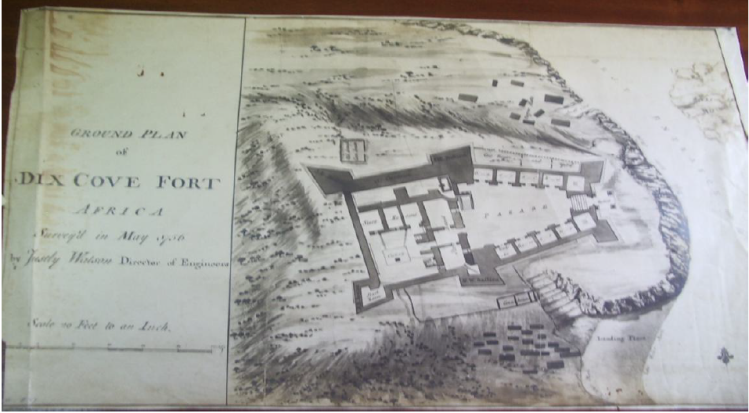 GROUND PLAN
of
DIX COVE FORT
AFRICA
Survey'd in May 1756
by Justly Watson Director of Engineers
Scale 20 Feet to an Inch.
PARADE
Landing Place